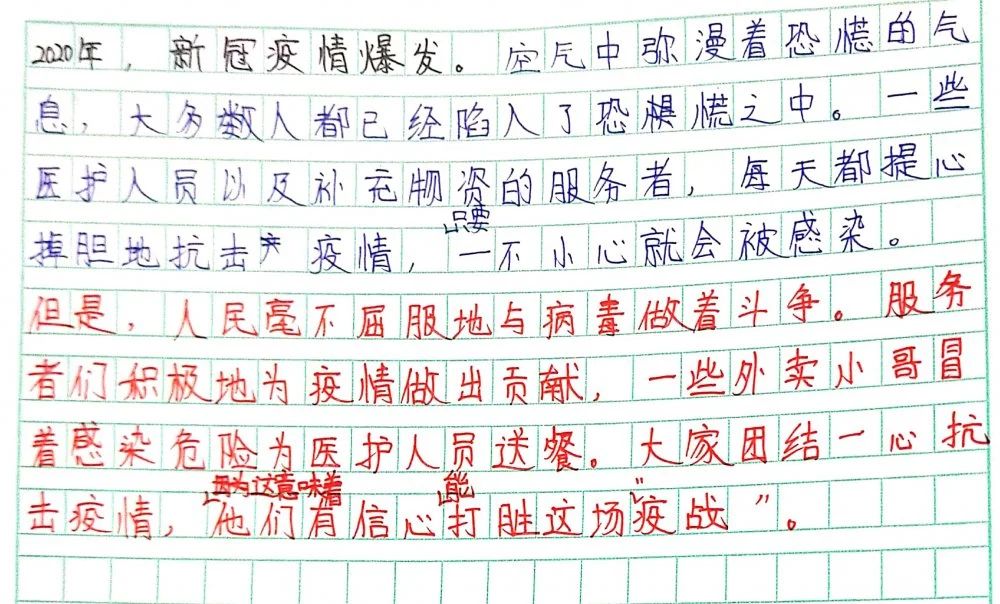 2020年，新冠疫情爆发。空气中弥漫着恐慌的气
息，大多数人都已经陷入了恐惧慌之中。一些
医护人员以及补充物资的服务者，每天都提心
只要
掉胆地抗击疫情，一不小心就会被感染。
但是，人民毫不屈服地与病毒做着斗争。服务
者们积极地为疫情做出贡献，一些外卖小哥冒
着感染危险为医护人员送餐。大家团结一心抗
因为这意味着 能
击疫情，他们有信心打胜这场“疫战”。